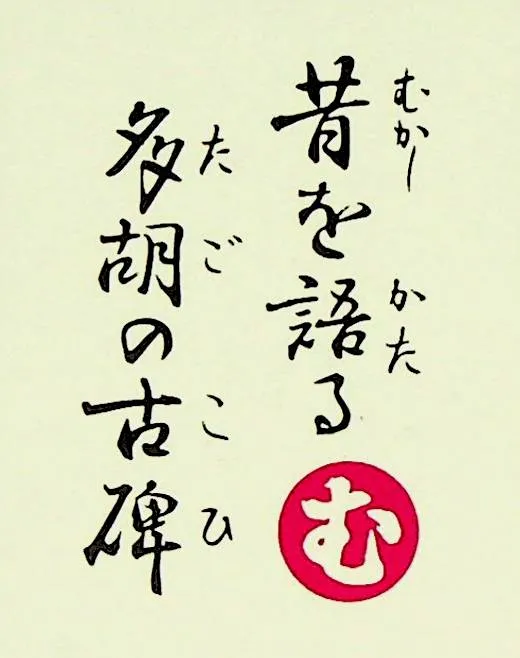 むかし
昔を語る
かた
む
たごこひ
多胡の古碑